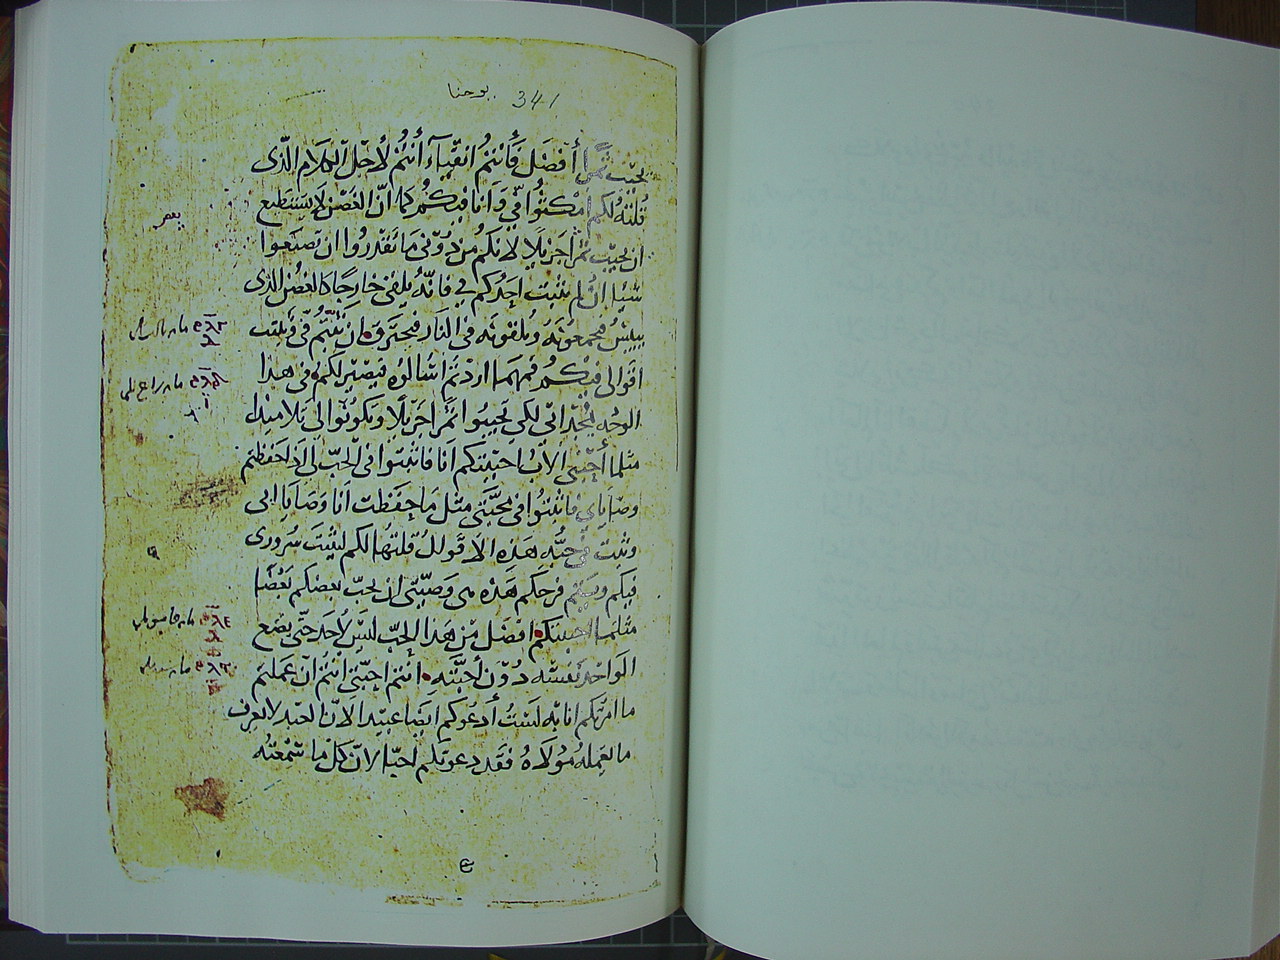 يوحنا 341
تجيب ثمرًا أفضل فأنتم انقيآء أنتم لأجل الكلام الذى
قلته لكم امكثوا فيّ وانا فيكم كما انّ الغصن لا يستطيع
ان يجيب ثمرا جزيلا لانكم من دونى ما تقدروا ان تصنعوا
شيئا ان لم يثبت احدكم في فانّه يلقى خارجًا كالغصن الذى
ييبسُ فيجمعونه ويلقونه فى النار فيحترق وان ثبتّم فىّ وثبتت
اقوالى فيكم فمهما اردتم اسالوه فيصير لكم فى هذا
الوجه يمجد ابى لكى تجيبوا ثمرا جزيلا وتكونوا لى تلاميذا
مثلما أحبّنى الآب احببتكم انا فاثبتوا فى الحبّ لى اذ احفظتم
وصاياى فاثبتوا فى محبّتى مثل ما حفظت انا وصايا ابى
وثبت فى حبّه هذه الاقوال قلتها لكم ليثبت سرورى
فيكم ويتم فرحكم هذه هى وصيّتى ان يحبّ بعضكم بعضا
مثلما احببتكم افضل من هذا الحبّ ليس لأحد حتّى يضع
الواحد نفسه دون أحبّته انتم احبّتى انتم ان عملتم
ما امرتكم انا به لست أدعوكم ايضا عبيدا لانّ العبد لا يعرف
ما يعمله مولاهُ فقد دعوتكم احبّا لانّ كل ما سمعته